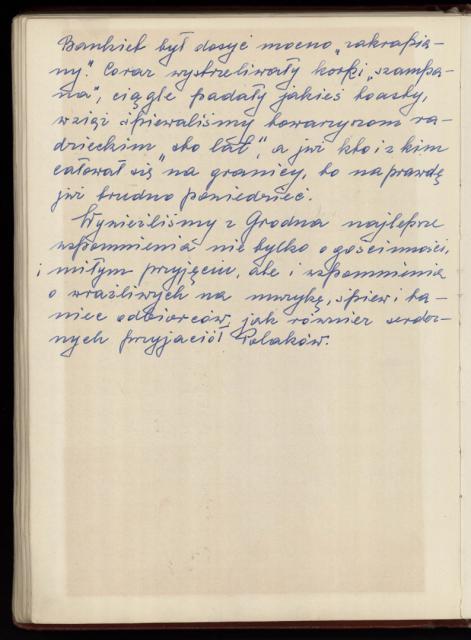 Bankiet był dosyć mocno „zakrapia-
ny". Coraz wystrzeliwały korki „szampa-
na", ciągle padały jakieś toasty,
wciąż śpiewaliśmy towarzyszom ra-
dzieckim „sto lat", a już kto i z kim
całował się „na granicy, to naprawdę
już trudno powiedzieć.
Wynieśliśmy z Grodna najlepsze
wspomnienia nie tylko o gościnności,
i miłym przyjęciu, ale i wspomnienia
o wrażliwych na muzykę, śpiew i ta-
niec odbiorców, jak również serdecz-
nych przyjaciół Polaków.